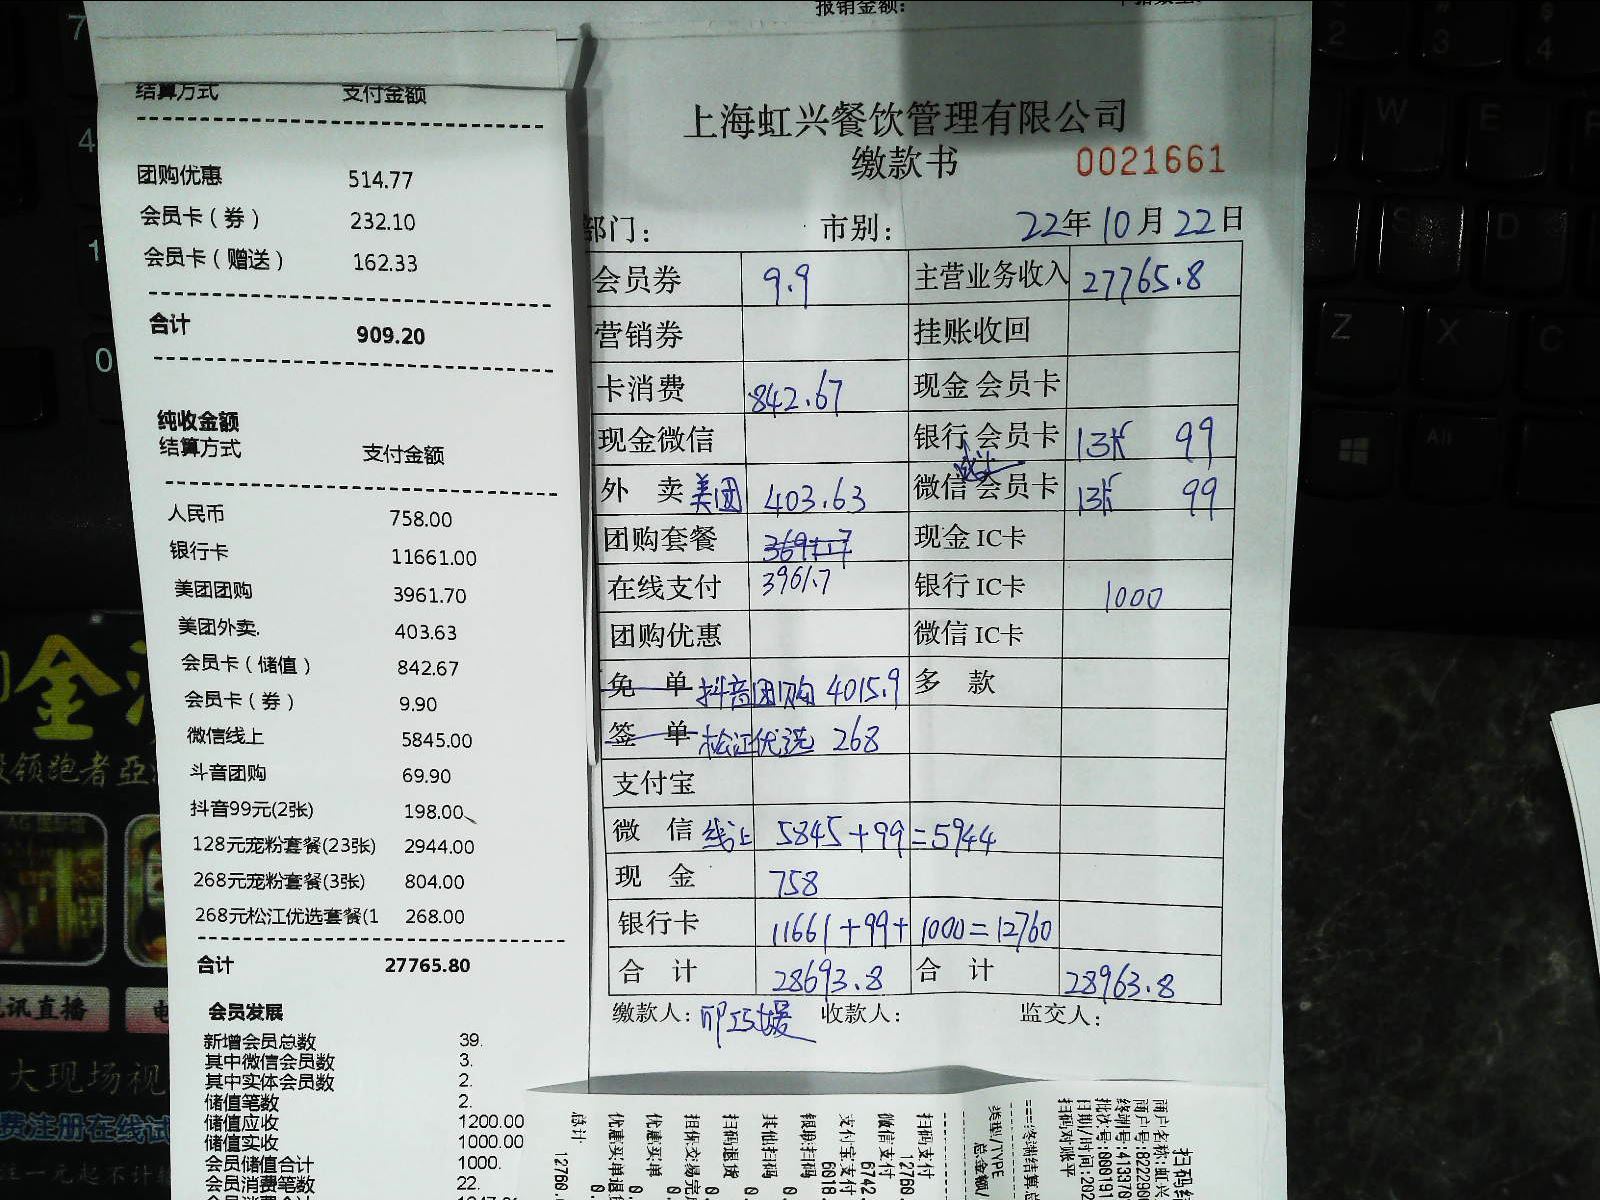 报销金额:
结算方式 支付金额
团购优惠 514.77
会员卡（券） 232.10
会员卡（赠送） 162.33
合计 909.20
纯收金额
结算方式 支付金额
人民币 758.00
银行卡 11661.00
美团团购 3961.70
美团外卖. 403.63
会员卡（储值） 842.67
会员卡（券） 9.90
微信线上 5845.00
斗音团购 69.90
抖音99元(2张) 198.00
128元宠粉套餐(23张) 2944.00
268元宠粉套餐(3张) 804.00
268元松江优选套餐(1 268.00
合计 27765.80
会员发展
新增会员总数 39.
其中微信会员数 3.
其中实体会员数 2.
储值笔数 2.
储值应收 1200.00
储值实收 1000.00
会员储值合计 1000.
会员消费笔数 22.
上海虹兴餐饮管理有限公司
缴款书 0021661
部门: 市别: 22年10月22日
会员券 9.9 主营业务收入 27765.8
营销券 挂账收回
卡消费 842.67 现金会员卡
现金微信 银行会员卡 1张 99
外 卖 美团 403.63 微信会员卡 1张 99
团购套餐 现金IC卡
在线支付 3961.7 银行IC卡 1000
团购优惠 微信IC卡
免 单 抖音团购 4015.9 多 款
签 单 松江优选 268
支付宝
微 信 线上 5845+99=5944
现 金 758
银行卡 11661+99+1000=12760
合 计 28693.8 合 计 28963.8
缴款人: 收款人: 监交人:
扫码支付 12760.
微信支付 6742
支付宝支付 6018
银联扫码 0.
其他扫码 0.
扫码退货 0.
担保交易完 0.
优惠买单 0.
优惠买单退 0.
总计 12760.
类型/TYPE 总金额/
扫码对账平